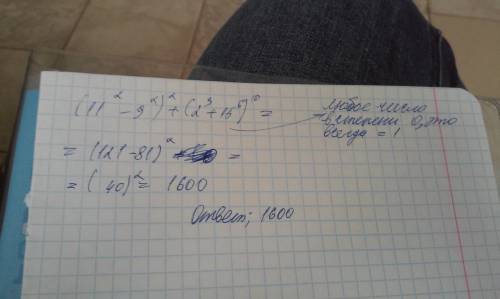 (11² - 9²)² + (2³ + 15⁵)⁰ =
любое число
в степени 0, это
всегда = 1
= (121 - 81)² =
= (40)² = 1600
Ответ; 1600